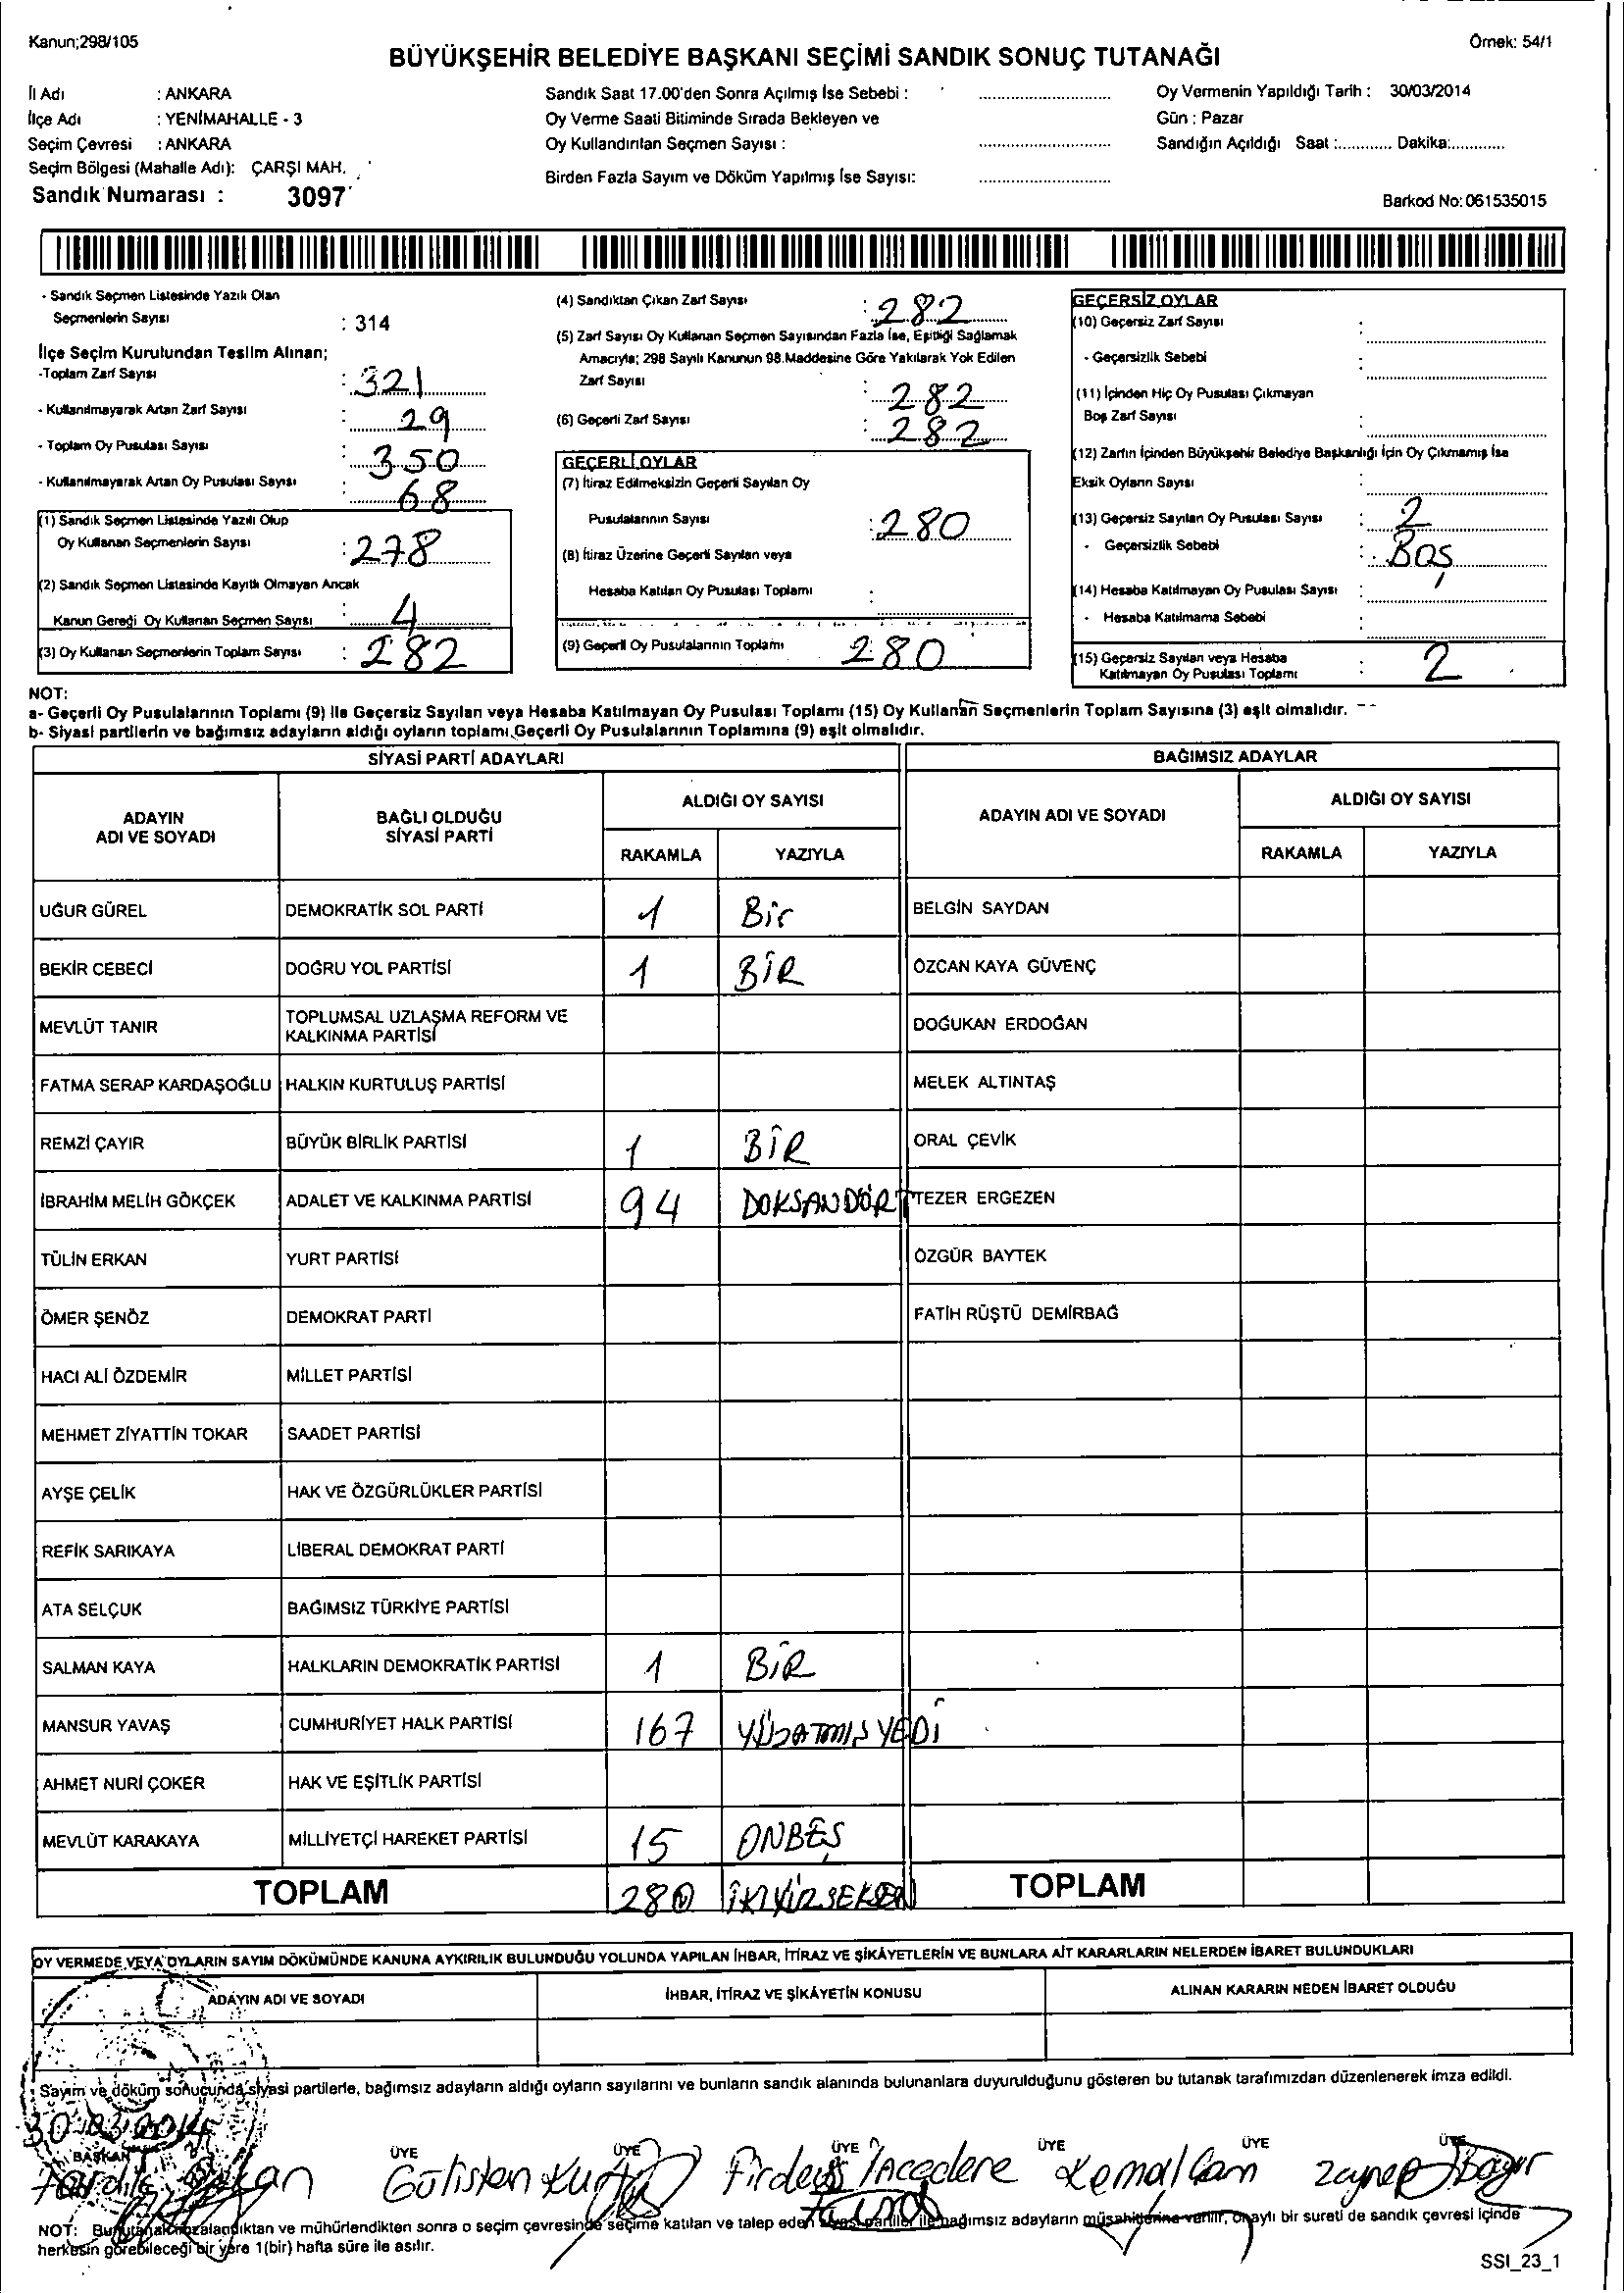 Kanun;298/105
Örnek: 54/1
BÜYÜKŞEHİR BELEDİYE BAŞKANI SEÇİMİ SANDIK SONUÇ TUTANAĞI
İl Adı : ANKARA
İlçe Adı : YENİMAHALLE - 3
Seçim Çevresi : ANKARA
Seçim Bölgesi (Mahalle Adı): ÇARŞI MAH.
Sandık Numarası : 3097
Sandık Saat 17.00'den Sonra Açılmış İse Sebebi :
Oy Verme Saati Bitiminde Sırada Bekleyen ve
Oy Kullandırılan Seçmen Sayısı :
Birden Fazla Sayım ve Döküm Yapılmış İse Sayısı:
Oy Vermenin Yapıldığı Tarih : 30/03/2014
Gün : Pazar
Sandığın Açıldığı Saat :............ Dakika:............
Barkod No: 061535015
- Sandık Seçmen Listesinde Yazılı Olan
Seçmenlerin Sayısı : 314
İlçe Seçim Kurulundan Teslim Alınan;
-Toplam Zarf Sayısı : 321
- Kullanılmayarak Artan Zarf Sayısı : 29
- Toplam Oy Pusulası Sayısı : 350
- Kullanılmayarak Artan Oy Pusulası Sayısı : 68
(1) Sandık Seçmen Listesinde Yazılı Olup
Oy Kullanan Seçmenlerin Sayısı : 278
(2) Sandık Seçmen Listesinde Kayıtlı Olmayan Ancak
Kanun Gereği Oy Kullanan Seçmen Sayısı : 4
(3) Oy Kullanan Seçmenlerin Toplam Sayısı : 282
(4) Sandıktan Çıkan Zarf Sayısı : 282
(5) Zarf Sayısı Oy Kullanan Seçmen Sayısından Fazla İse, Eşitliği Sağlamak
Amacıyla; 298 Sayılı Kanunun 98.Maddesine Göre Yakılarak Yok Edilen
Zarf Sayısı : 282
(6) Geçerli Zarf Sayısı : 282
GEÇERLİ OYLAR
(7) İtiraz Edilmeksizin Geçerli Sayılan Oy
Pusulalarının Sayısı : 280
(8) İtiraz Üzerine Geçerli Sayılan veya
Hesaba Katılan Oy Pusulası Toplamı :
(9) Geçerli Oy Pusulalarının Toplamı 280
GEÇERSİZ OYLAR
(10) Geçersiz Zarf Sayısı :
- Geçersizlik Sebebi :
(11) İçinden Hiç Oy Pusulası Çıkmayan
Boş Zarf Sayısı :
(12) Zarfın İçinden Büyükşehir Belediye Başkanlığı İçin Oy Çıkmamış İse
Eksik Oyların Sayısı :
(13) Geçersiz Sayılan Oy Pusulası Sayısı : 2
- Geçersizlik Sebebi : Boş
(14) Hesaba Katılmayan Oy Pusulası Sayısı :
- Hesaba Katılmama Sebebi :
(15) Geçersiz Sayılan veya Hesaba
Katılmayan Oy Pusulası Toplamı : 2
NOT:
a- Geçerli Oy Pusulalarının Toplamı (9) ile Geçersiz Sayılan veya Hesaba Katılmayan Oy Pusulası Toplamı (15) Oy Kullanan Seçmenlerin Toplam Sayısına (3) eşit olmalıdır.
b- Siyasi partilerin ve bağımsız adayların aldığı oyların toplamı Geçerli Oy Pusulalarının Toplamına (9) eşit olmalıdır.
SİYASİ PARTİ ADAYLARI BAĞIMSIZ ADAYLAR
ADAYIN ADI VE SOYADI BAĞLI OLDUĞU SİYASİ PARTİ ALDIĞI OY SAYISI ADAYIN ADI VE SOYADI ALDIĞI OY SAYISI
RAKAMLA YAZIYLA RAKAMLA YAZIYLA
UĞUR GÜREL DEMOKRATİK SOL PARTİ 1 Bir BELGİN SAYDAN
BEKİR CEBECİ DOĞRU YOL PARTİSİ 1 BİR ÖZCAN KAYA GÜVENÇ
MEVLÜT TANIR TOPLUMSAL UZLAŞMA REFORM VE KALKINMA PARTİSİ DOĞUKAN ERDOĞAN
FATMA SERAP KARDAŞOĞLU HALKIN KURTULUŞ PARTİSİ MELEK ALTINTAŞ
REMZİ ÇAYIR BÜYÜK BİRLİK PARTİSİ 1 BİR ORAL ÇEVİK
İBRAHİM MELİH GÖKÇEK ADALET VE KALKINMA PARTİSİ 94 DOKSANDÖRT TEZER ERGEZEN
TÜLİN ERKAN YURT PARTİSİ ÖZGÜR BAYTEK
ÖMER ŞENÖZ DEMOKRAT PARTİ FATİH RÜŞTÜ DEMİRBAĞ
HACI ALİ ÖZDEMİR MİLLET PARTİSİ
MEHMET ZİYATTİN TOKAR SAADET PARTİSİ
AYŞE ÇELİK HAK VE ÖZGÜRLÜKLER PARTİSİ
REFİK SARIKAYA LİBERAL DEMOKRAT PARTİ
ATA SELÇUK BAĞIMSIZ TÜRKİYE PARTİSİ
SALMAN KAYA HALKLARIN DEMOKRATİK PARTİSİ 1 BİR
MANSUR YAVAŞ CUMHURİYET HALK PARTİSİ 167 YÜZATMIŞYEDİ
AHMET NURİ ÇOKER HAK VE EŞİTLİK PARTİSİ
MEVLÜT KARAKAYA MİLLİYETÇİ HAREKET PARTİSİ 15 ONBEŞ
TOPLAM 280 İKİYÜZSEKSEN TOPLAM
OY VERMEDE VEYA OYLARIN SAYIM DÖKÜMÜNDE KANUNA AYKIRILIK BULUNDUĞU YOLUNDA YAPILAN İHBAR, İTİRAZ VE ŞİKÂYETLERİN VE BUNLARA AİT KARARLARIN NELERDEN İBARET BULUNDUKLARI
ADAYIN ADI VE SOYADI İHBAR, İTİRAZ VE ŞİKÂYETİN KONUSU ALINAN KARARIN NEDEN İBARET OLDUĞU
Sayım ve döküm sonucunda siyasi partilerle, bağımsız adayların aldığı oyların sayılarını ve bunların sandık alanında bulunanlara duyurulduğunu gösteren bu tutanak tarafımızdan düzenlenerek imza edildi.
30.03.2014
BAŞKAN ÜYE ÜYE ÜYE ÜYE ÜYE ÜYE
Gülistan Kurt Firdevs İncedere Kemal Çam Zeynep
NOT: Bu tutanak imzalandıktan ve mühürlendikten sonra o seçim çevresinde seçime katılan ve talep eden siyasi partiler ile bağımsız adayların müşahitlerine verilir, onaylı bir sureti de sandık çevresi içinde
herkesin görebileceği bir yere 1(bir) hafta süre ile asılır.
SSI_23_1